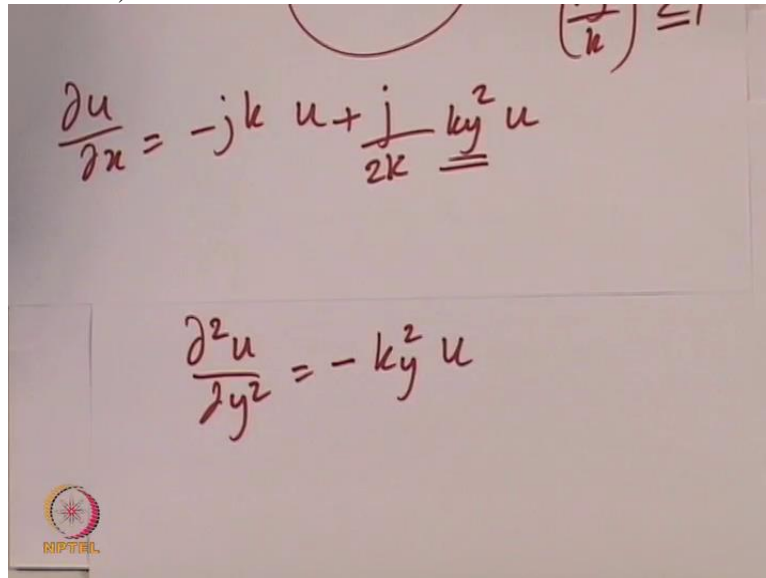 k) ≤1
∂u/∂x = -jk u + j/2k ky² u
∂²u/∂y² = - ky² u
NPTEL